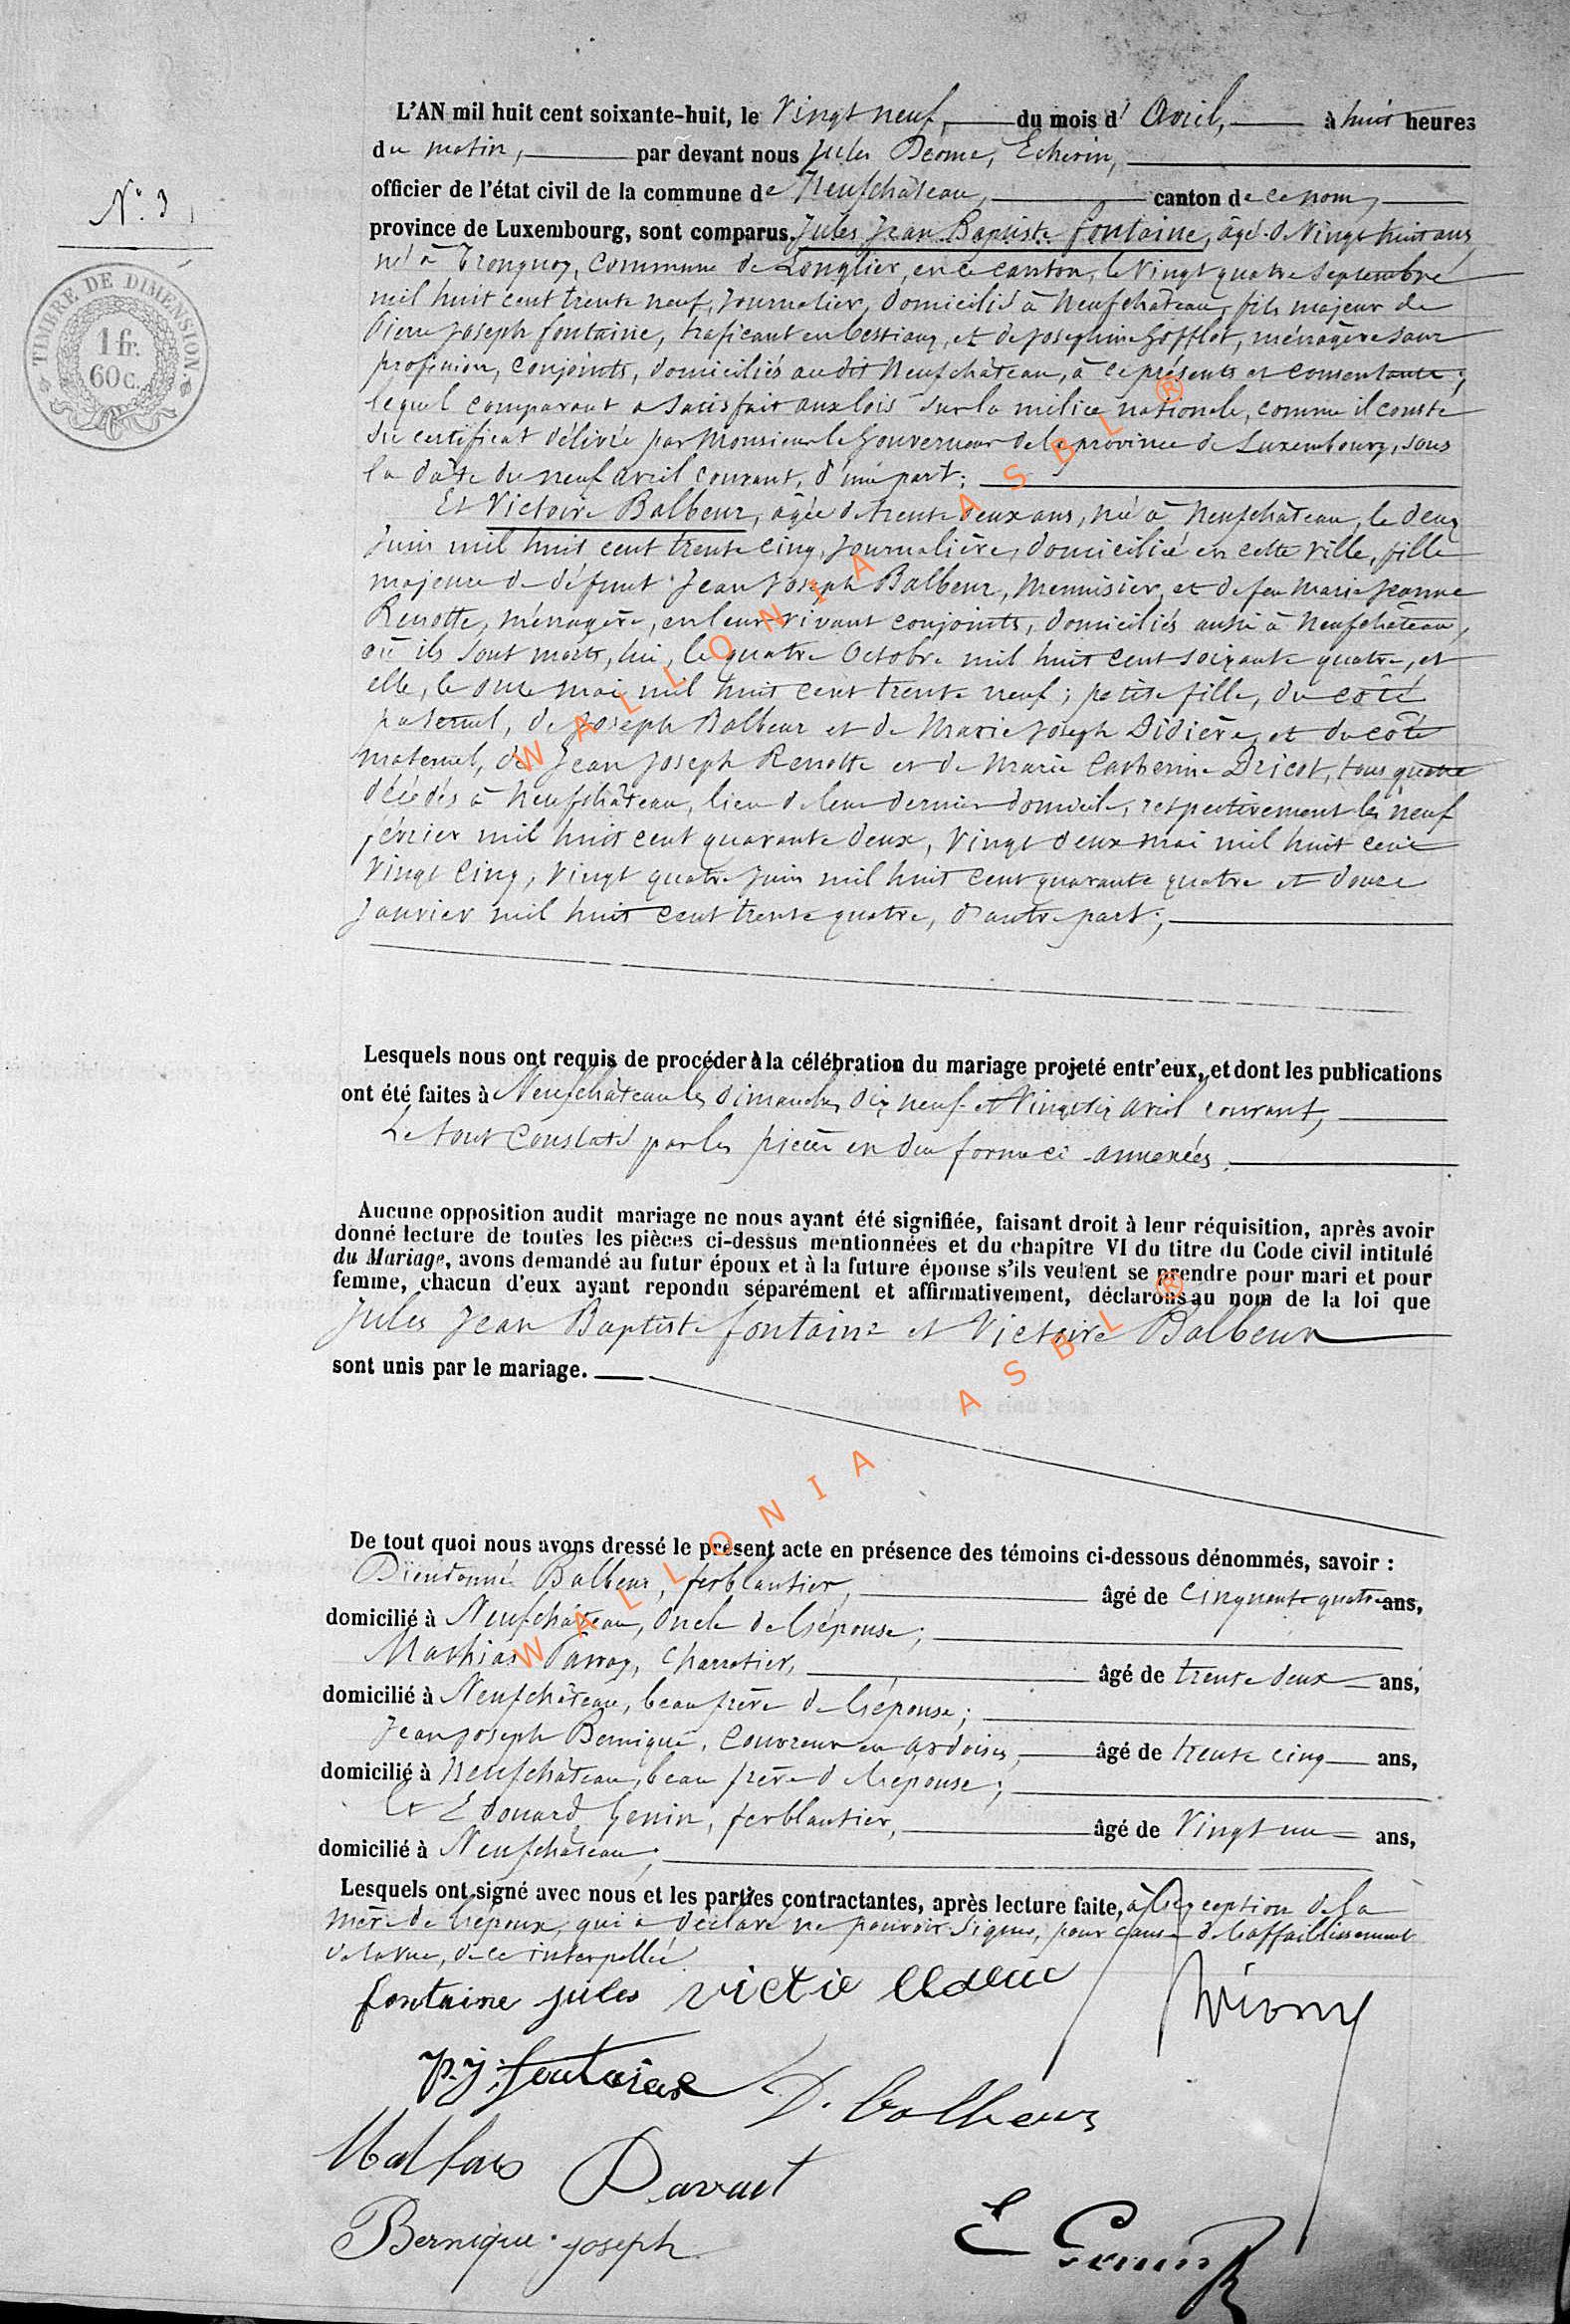 L'AN mil huit cent soixante-huit, le Vingt neuf, du mois d' Avril, à huit heures
du matin, par devant nous Jules Déome, Echevin,
officier de l'état civil de la commune de Neufchâteau, canton de ce nom,
N° 3
province de Luxembourg, sont comparus Jules Jean Baptiste fontaine, âgé de Vingt huit ans
né à Tronquoy, Commune de Longlier, en ce canton, le Vingt quatre Septembre
mil huit cent trente neuf, Journalier, domicilié à Neufchâteau, fils majeur de
TIMBRE DE DIMENSION
1 fr.
60 c.
Pierre Joseph fontaine, traficant en bestiaux, et de Josephine Gofflot, ménagère sans
profession, conjoints, domiciliés audit Neufchâteau, à ce présents et consentants;
lequel comparant a satisfait aux lois sur la milice nationale, comme il conste
du certificat délivré par Monsieur le Gouverneur de la province de Luxembourg, sous
la date du neuf avril courant, d'une part;
Et Victoire Balbeur, âgée de trente deux ans, née à Neufchâteau, le deux
Juin mil huit cent trente cinq, Journalière, domiciliée en cette ville, fille
majeure de défunt Jean Joseph Balbeur, Menuisier, et de feu Marie Jeanne
Renotte, ménagère, en leur vivant conjoints, domiciliés aussi à Neufchâteau,
où ils sont morts, lui, le quatre Octobre mil huit cent soixante quatre, et
elle, le onze mai mil huit cent trente neuf; petite fille, du côté
paternel, de Joseph Balbeur et de Marie Joseph Didière, et du côté
maternel, de Jean Joseph Renotte et de Marie Catherine Dricot, tous quatre
décédés à Neufchâteau, lieu de leur dernier domicile, respectivement les neuf
février mil huit cent quarante deux, Vingt deux mai mil huit cent
Vingt cinq, Vingt quatre Juin mil huit cent quarante quatre et douze
Janvier mil huit cent trente quatre, d'autre part;
Lesquels nous ont requis de procéder à la célébration du mariage projeté entr'eux, et dont les publications
ont été faites à Neufchâteau les dimanches dix neuf et Vingt six avril courant,
Le tout constaté par les pièces en due forme ci annexées.
Aucune opposition audit mariage ne nous ayant été signifiée, faisant droit à leur réquisition, après avoir
donné lecture de toutes les pièces ci-dessus mentionnées et du chapitre VI du titre du Code civil intitulé
du Mariage, avons demandé au futur époux et à la future épouse s'ils veulent se prendre pour mari et pour
femme, chacun d'eux ayant repondu séparément et affirmativement, déclarons au nom de la loi que
Jules Jean Baptiste fontaine et Victoire Balbeur
sont unis par le mariage.
De tout quoi nous avons dressé le présent acte en présence des témoins ci-dessous dénommés, savoir :
Dieudonné Balbeur, ferblantier, âgé de Cinquante quatre ans,
domicilié à Neufchâteau, Oncle de l'épouse;
Mathias Parvay, Charretier, âgé de trente deux ans,
domicilié à Neufchâteau, beau frère de l'épouse;
Jean Joseph Bernique, Couvreur en ardoises, âgé de trente cinq ans,
domicilié à Neufchâteau, beau frère de l'épouse;
Et Edouard Genin, ferblantier, âgé de Vingt un ans,
domicilié à Neufchâteau;
Lesquels ont signé avec nous et les parties contractantes, après lecture faite, à l'exception de la
mère de l'époux, qui a déclaré ne pouvoir signer, pour cause de l'affaiblissement
de la vue, de ce interpellée
fontaine jules
p.j. fontaine D. balbeur
Bernique joseph
E Genin
WALLONIA ASBL ®
WALLONIA ASBL ®